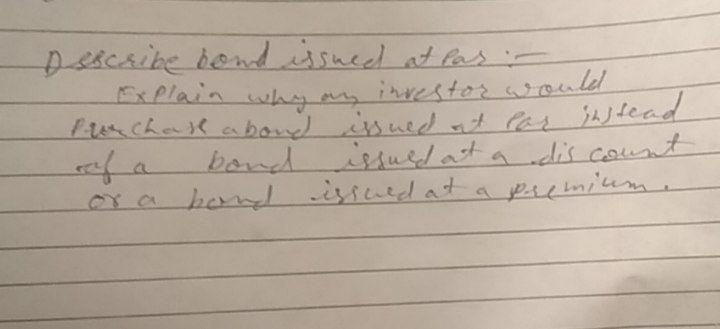 Describe bond issued at Par :-
Explain why an investor would
Purchase a bond issued at Par instead
of a bond issued at a discount
or a bond issued at a premium.